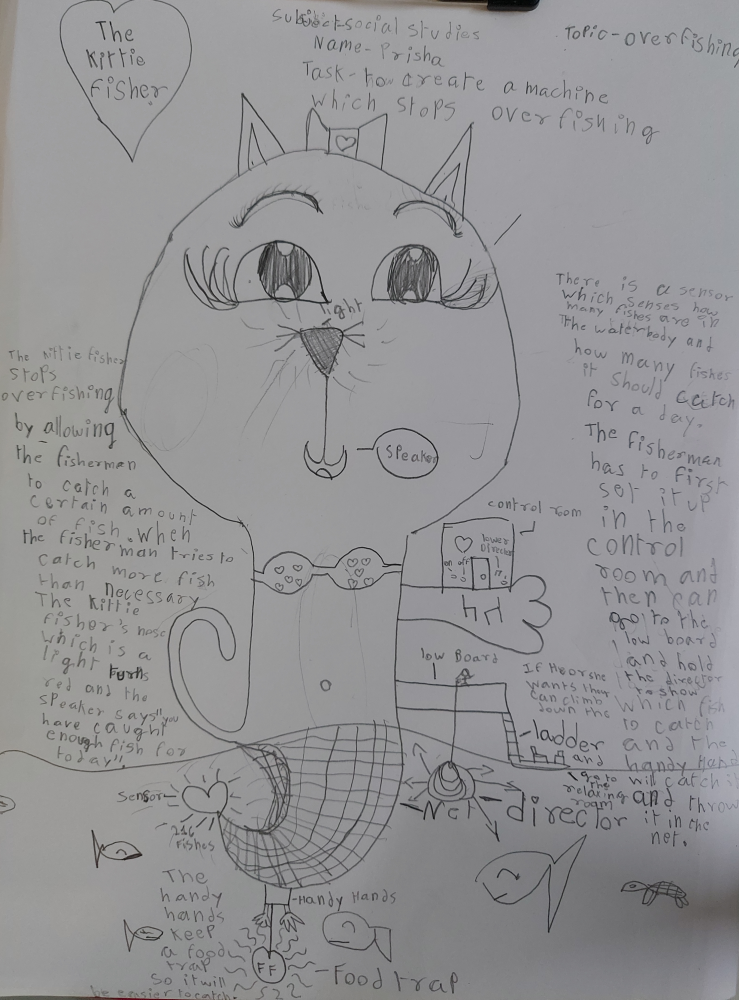 The
Kittie
Fisher
Subject-social studies
Name- Prisha
Task- to create a machine
which stops overfishing
Topic-overfishing
light
Speaker
The Kittie fisher
stops
overfishing
by allowing
the fisherman
to catch a
certain amount
of fish. When
the fisherman tries to
catch more fish
than necessary
The Kittie
fisher's nose
which is a
light turns
red and the
speaker says "you
have caught
enough fish for
today".
There is a sensor
which senses how
many fishes are in
The waterbody and
how many fishes
it should catch
for a day.
The fisherman
has to first
set it up
in the
control
room and
then can
go to the
low board
and hold
the director
to show
which fish
to catch
and the
handy Hand
will catch it
and throw
it in the
net.
control room
lower
Director
on off
low Board
If He or she
wants they
can climb
down the
ladder
and
go to
the
relaxing
room
Net
director
Sensor
216
fishes
Handy Hands
The
handy
hands
keep
a food
trap
so it will
be easier to catch.
FF
Food trap